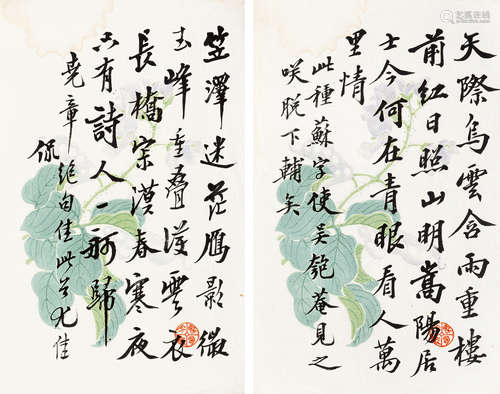 天際烏雲含雨重樓
前紅日照山明嵩陽居
士今何在青眼看人萬
里情
此種蘇字使吳匏菴見之
咲脫下輔矣
笠澤茫茫鴈影微
玉峰重疊護雲衣
長橋寂寞春寒夜
只有詩人一舸歸
堯章絕句佳此首尤佳
侃